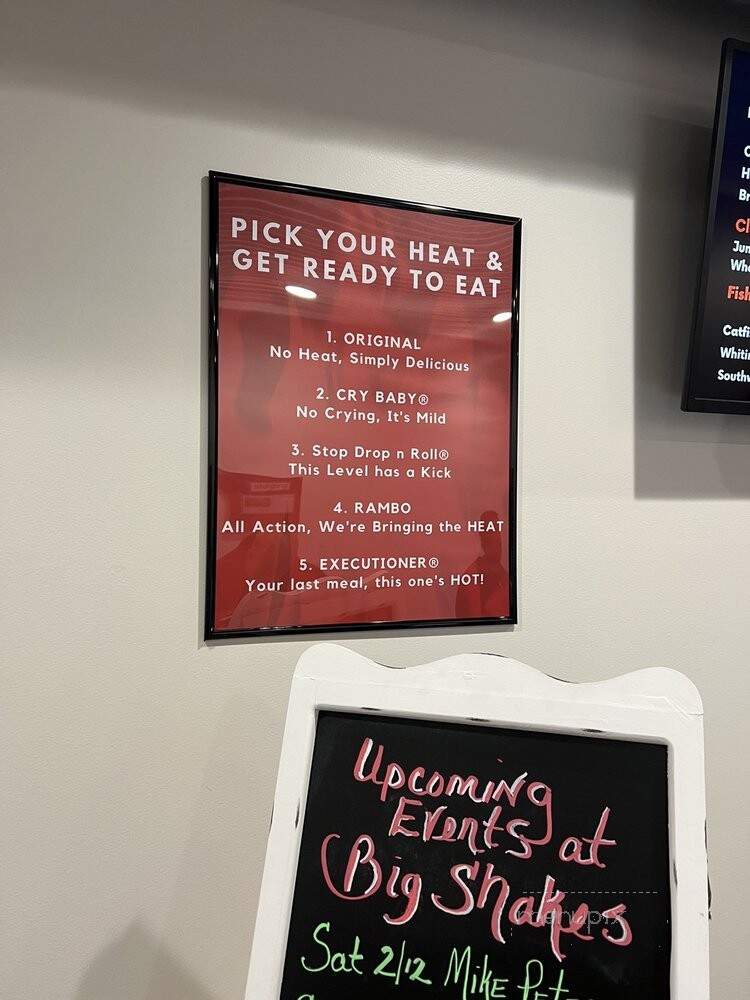 PICK YOUR HEAT &
GET READY TO EAT
1. ORIGINAL
No Heat, Simply Delicious
2. CRY BABY®
No Crying, It's Mild
3. Stop Drop n Roll®
This Level has a Kick
4. RAMBO
All Action, We're Bringing the HEAT
5. EXECUTIONER®
Your last meal, this one's HOT!
Fish
Upcoming
Events at
Big Shakes
Sat 2/12 Mike
menupix